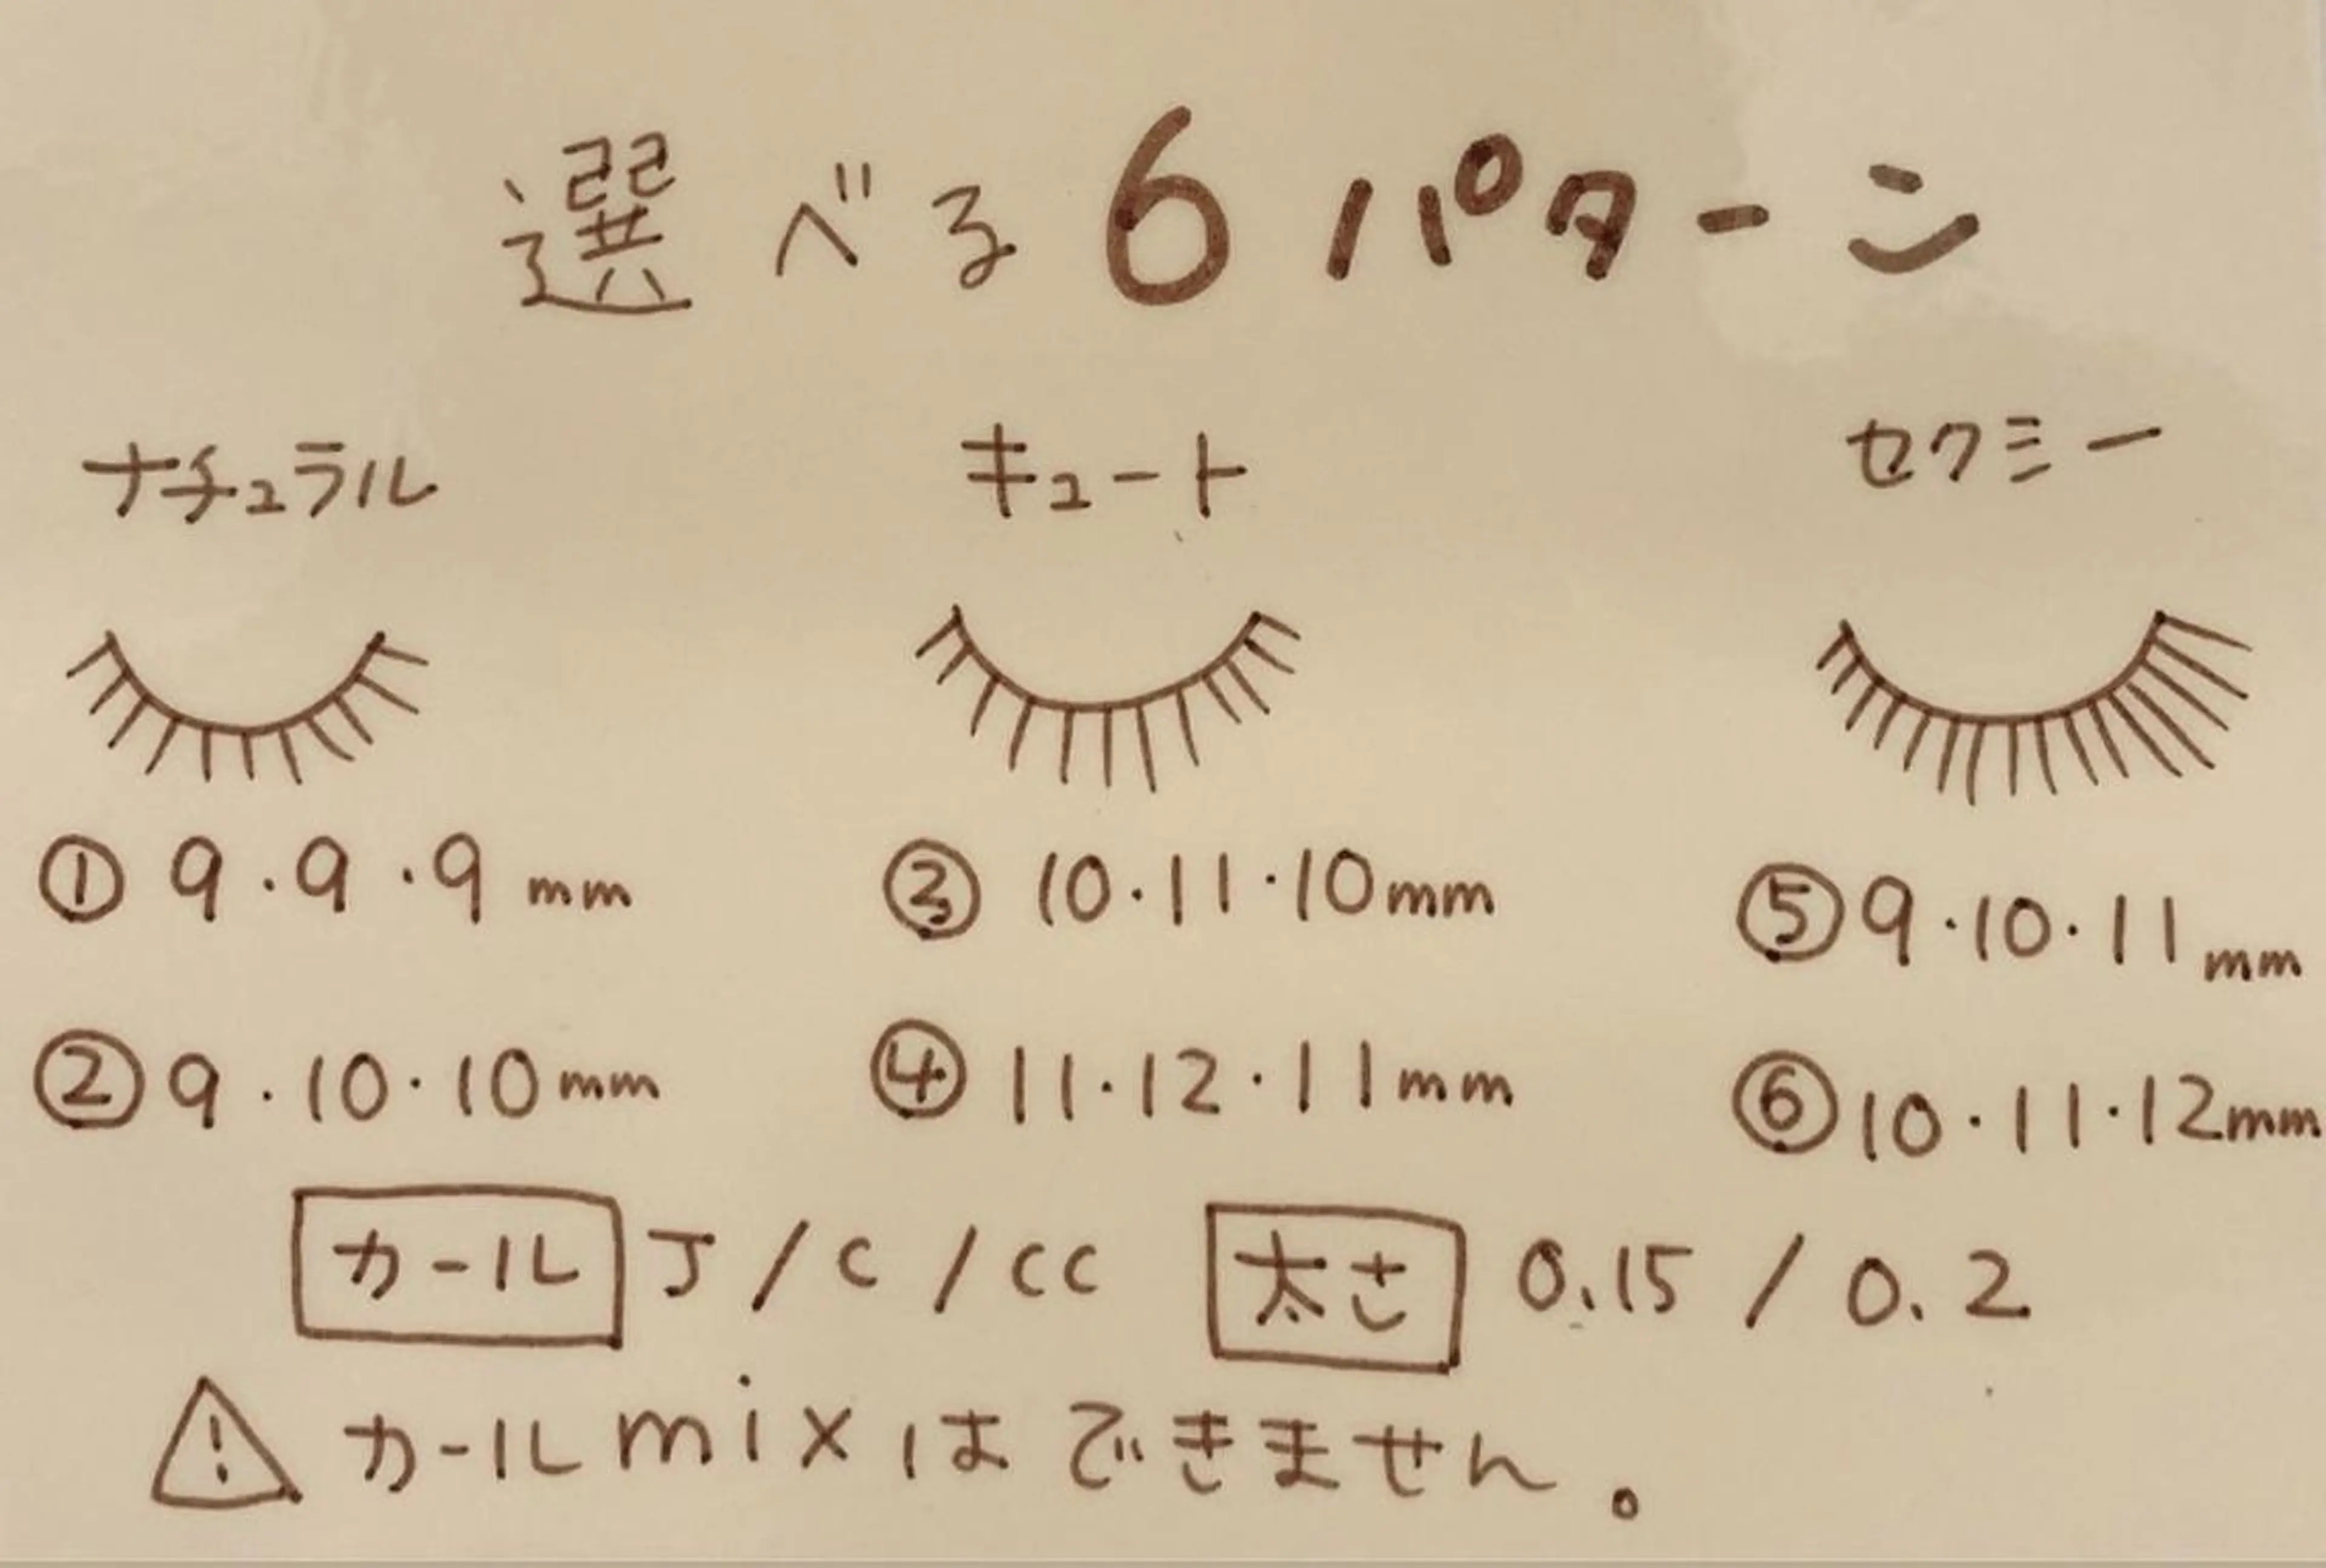 選べる6パターン
ナチュラル キュート セクシー
① 9・9・9mm ③ 10・11・10mm ⑤ 9・10・11mm
② 9・10・10mm ④ 11・12・11mm ⑥ 10・11・12mm
カール J / C / CC 太さ 0.15 / 0.2
⚠ カールmixはできません。